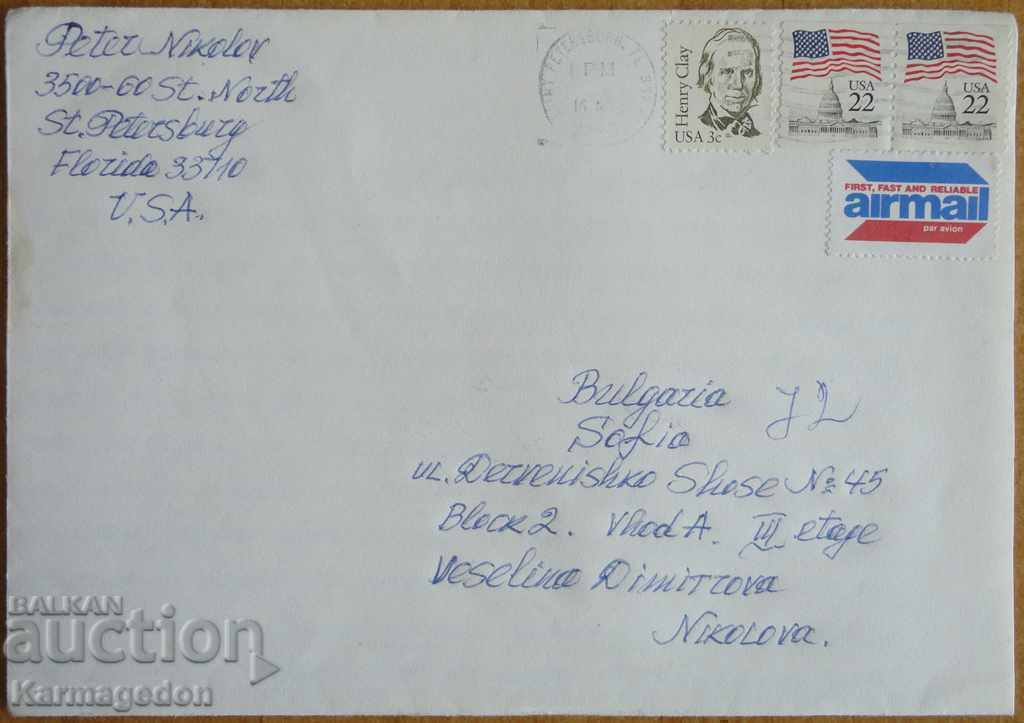 Peter Nikolov
3500-60 St. North
St. Petersburg
Florida 33710
U.S.A.
ST PETERSBURG, FL
Henry Clay
USA 3c
USA
22
USA
22
FIRST, FAST AND RELIABLE
airmail
par avion
Bulgaria
Sofia
ul. Dervenishko Shose № 45
Block 2. Vhod A. III etage
Veselina Dimitrova
Nikolova.
BALKAN
auction
Karmagedon